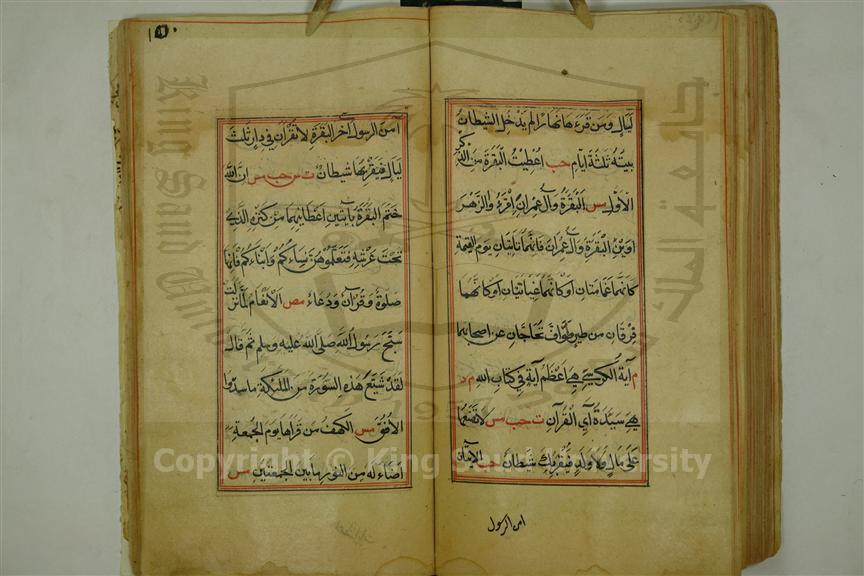 ليال ومن قرءها نهارا لم يدخل الشيطان
بيته ثلثة ايام حب اعطيت البقرة من الذكر
الاول مس البقرة وآل عمران اقرؤا الزهر
اوين البقرة وآل عمران فانهما تاتيان يوم القيمة
كانهما غمامتان او كانهما غيايتان او كانهما
فرقان من طير صواف تحاجان عن اصحابهما
م آية الكرسي هي اعظم آية في كتاب الله م د
هي سيدة آي القرآن ت حب مس لا تضعها
على مال ولا ولد فيقربك شيطان حب الآيتان
امن الرسول
آمن الرسول آخر البقرة لا تقرآن في دار ثلث
ليال فيقربها شيطان ت س حب مس ان الله
ختم البقرة بآيتين اعطانيهما من كنزه الذي
تحت عرشه فتعلموهن نساءكم وابناءكم فانها
صلوة وقرآن ودعاء مس الانعام لما نزلت
سبح رسول الله صلى الله عليه وسلم ثم قال
لقد شيع هذه السورة من الملئكة ما سدوا
الافق مس الكهف من قراها يوم الجمعة
اضاء له من النور ما بين الجمعتين مس
Copyright © King Saud University